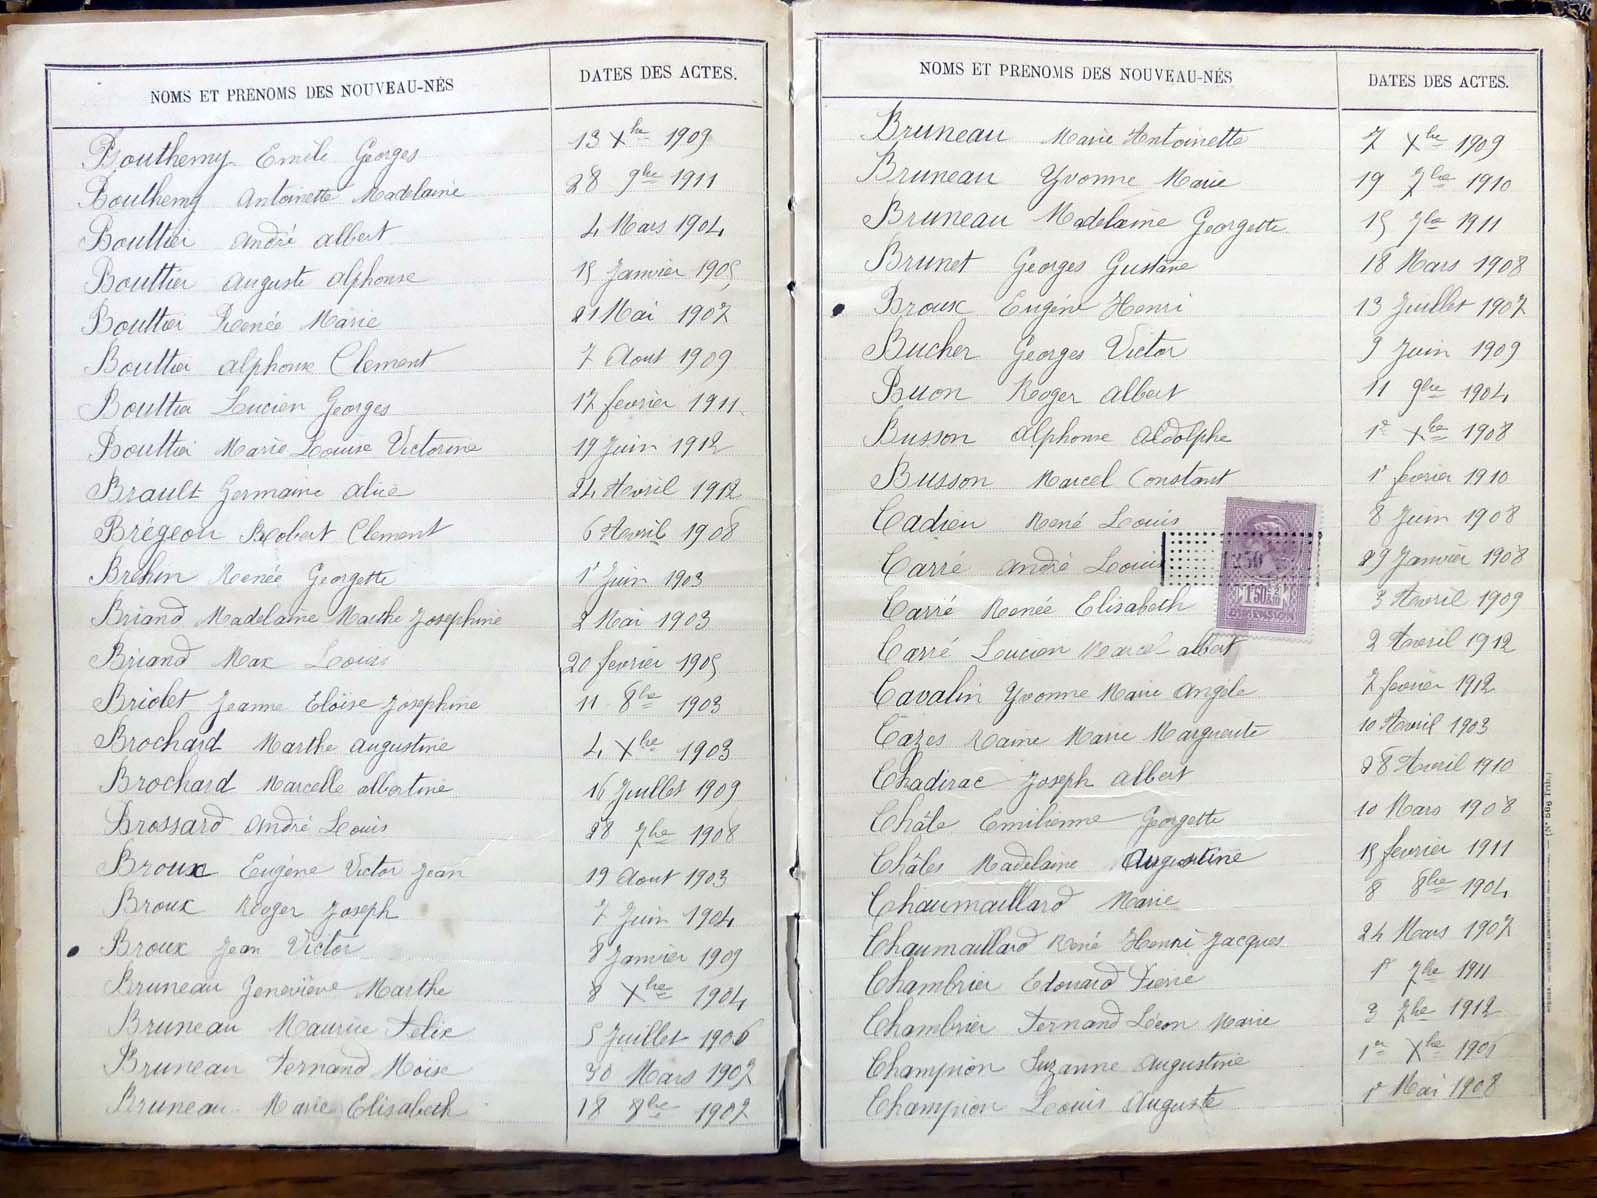 NOMS ET PRÉNOMS DES NOUVEAU-NÉS DATES DES ACTES.
Bouthemy Emile Georges 13 Xbre 1909
Bouthemy Antoinette Madelaine 28 9bre 1911
Bouttier André Albert 4 Mars 1904
Bouttier Auguste Alphonse 15 Janvier 1905
Bouttier Renée Marie 21 Mai 1907
Bouttier Alphonse Clement 7 Aout 1909
Bouttier Lucien Georges 17 fevrier 1911
Bouttier Marie Louise Victorine 19 Juin 1912
Brault Germaine Alice 24 Avril 1912
Brégeon Robert Clement 6 Avril 1908
Brehin Renée Georgette 1r Juin 1903
Briand Madelaine Marthe Josephine 2 Mai 1903
Briand Max Louis 20 fevrier 1905
Briolet Jeanne Eloïse Josephine 11 8bre 1903
Brochard Marthe Augustine 4 Xbre 1903
Brochard Marcelle Albertine 16 Juillet 1909
Brossard André Louis 28 7bre 1908
Broux Eugène Victor Jean 19 Aout 1903
Broux Roger Joseph 7 Juin 1904
Broux Jean Victor 8 Janvier 1909
Bruneau Geneviève Marthe 8 Xbre 1904
Bruneau Maurice Felix 5 Juillet 1906
Bruneau Fernand Moïse 30 Mars 1907
Bruneau Marie Elisabeth 18 8bre 1907
NOMS ET PRENOMS DES NOUVEAU-NÉS DATES DES ACTES.
Bruneau Marie Antoinette 7 Xbre 1909
Bruneau Yvonne Marie 19 7bre 1910
Bruneau Madelaine Georgette 15 7bre 1911
Brunet Georges Gustave 18 Mars 1908
Broux Eugène Henri 13 Juillet 1907
Bucher Georges Victor 9 Juin 1909
Buon Roger Albert 11 9bre 1904
Busson Alphonse Aldolphe 1r Xbre 1908
Busson Marcel Constant 1r fevrier 1910
Cadieu René Louis 8 Juin 1908
Carré André Louis 29 Janvier 1908
Carré Renée Elisabeth 3 Avril 1909
Carré Lucien Marcel Albert 2 Avril 1912
Cavalin Yvonne Marie Angèle 7 fevrier 1912
Cazes Raine Marie Marguerite 10 Avril 1903
Chadirac Joseph Albert 28 Avril 1910
Châle Emilienne Georgette 10 Mars 1908
Châles Madelaine Augustine 15 fevrier 1911
Chaumaillard Marie 8 8bre 1904
Chaumaillard René Henri Jacques 24 Mars 1907
Chambrier Edouard Pierre 1r 7bre 1911
Chambrier Fernand Léon Marie 3 7bre 1912
Champion Suzanne Augustine 1er Xbre
Champion Louis Auguste 1r Mai 1908
1f50
(N° 566 Trib.)